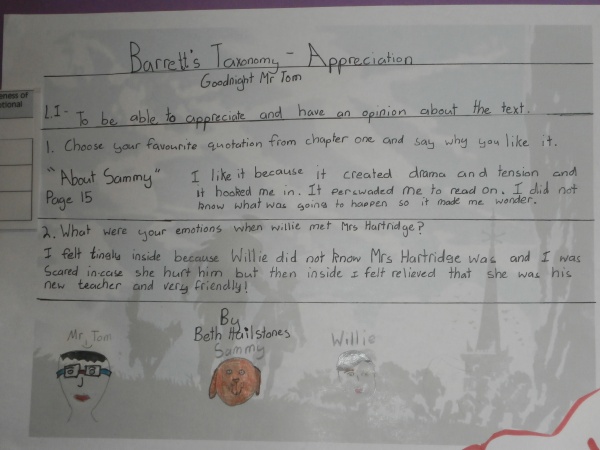 Barrett's Taxonomy - Appreciation
Goodnight Mr Tom
eness of
otional
L.I- To be able to appreciate and have an opinion about the text.
1. Choose your favourite quotation from chapter one and say why you like it.
"About Sammy"
Page 15
I like it because it created drama and tension and
it hooked me in. It perswaded me to read on. I did not
know what was going to happen so it made me wonder.
2. What were your emotions when willie met Mrs Hartridge?
I felt tingly inside because Willie did not know Mrs Hartridge was and I was
Scared in-case she hurt him but then inside I felt relieved that she was his
new teacher and very friendly!
By
Beth Hailstones
Mr Tom
Sammy
Willie